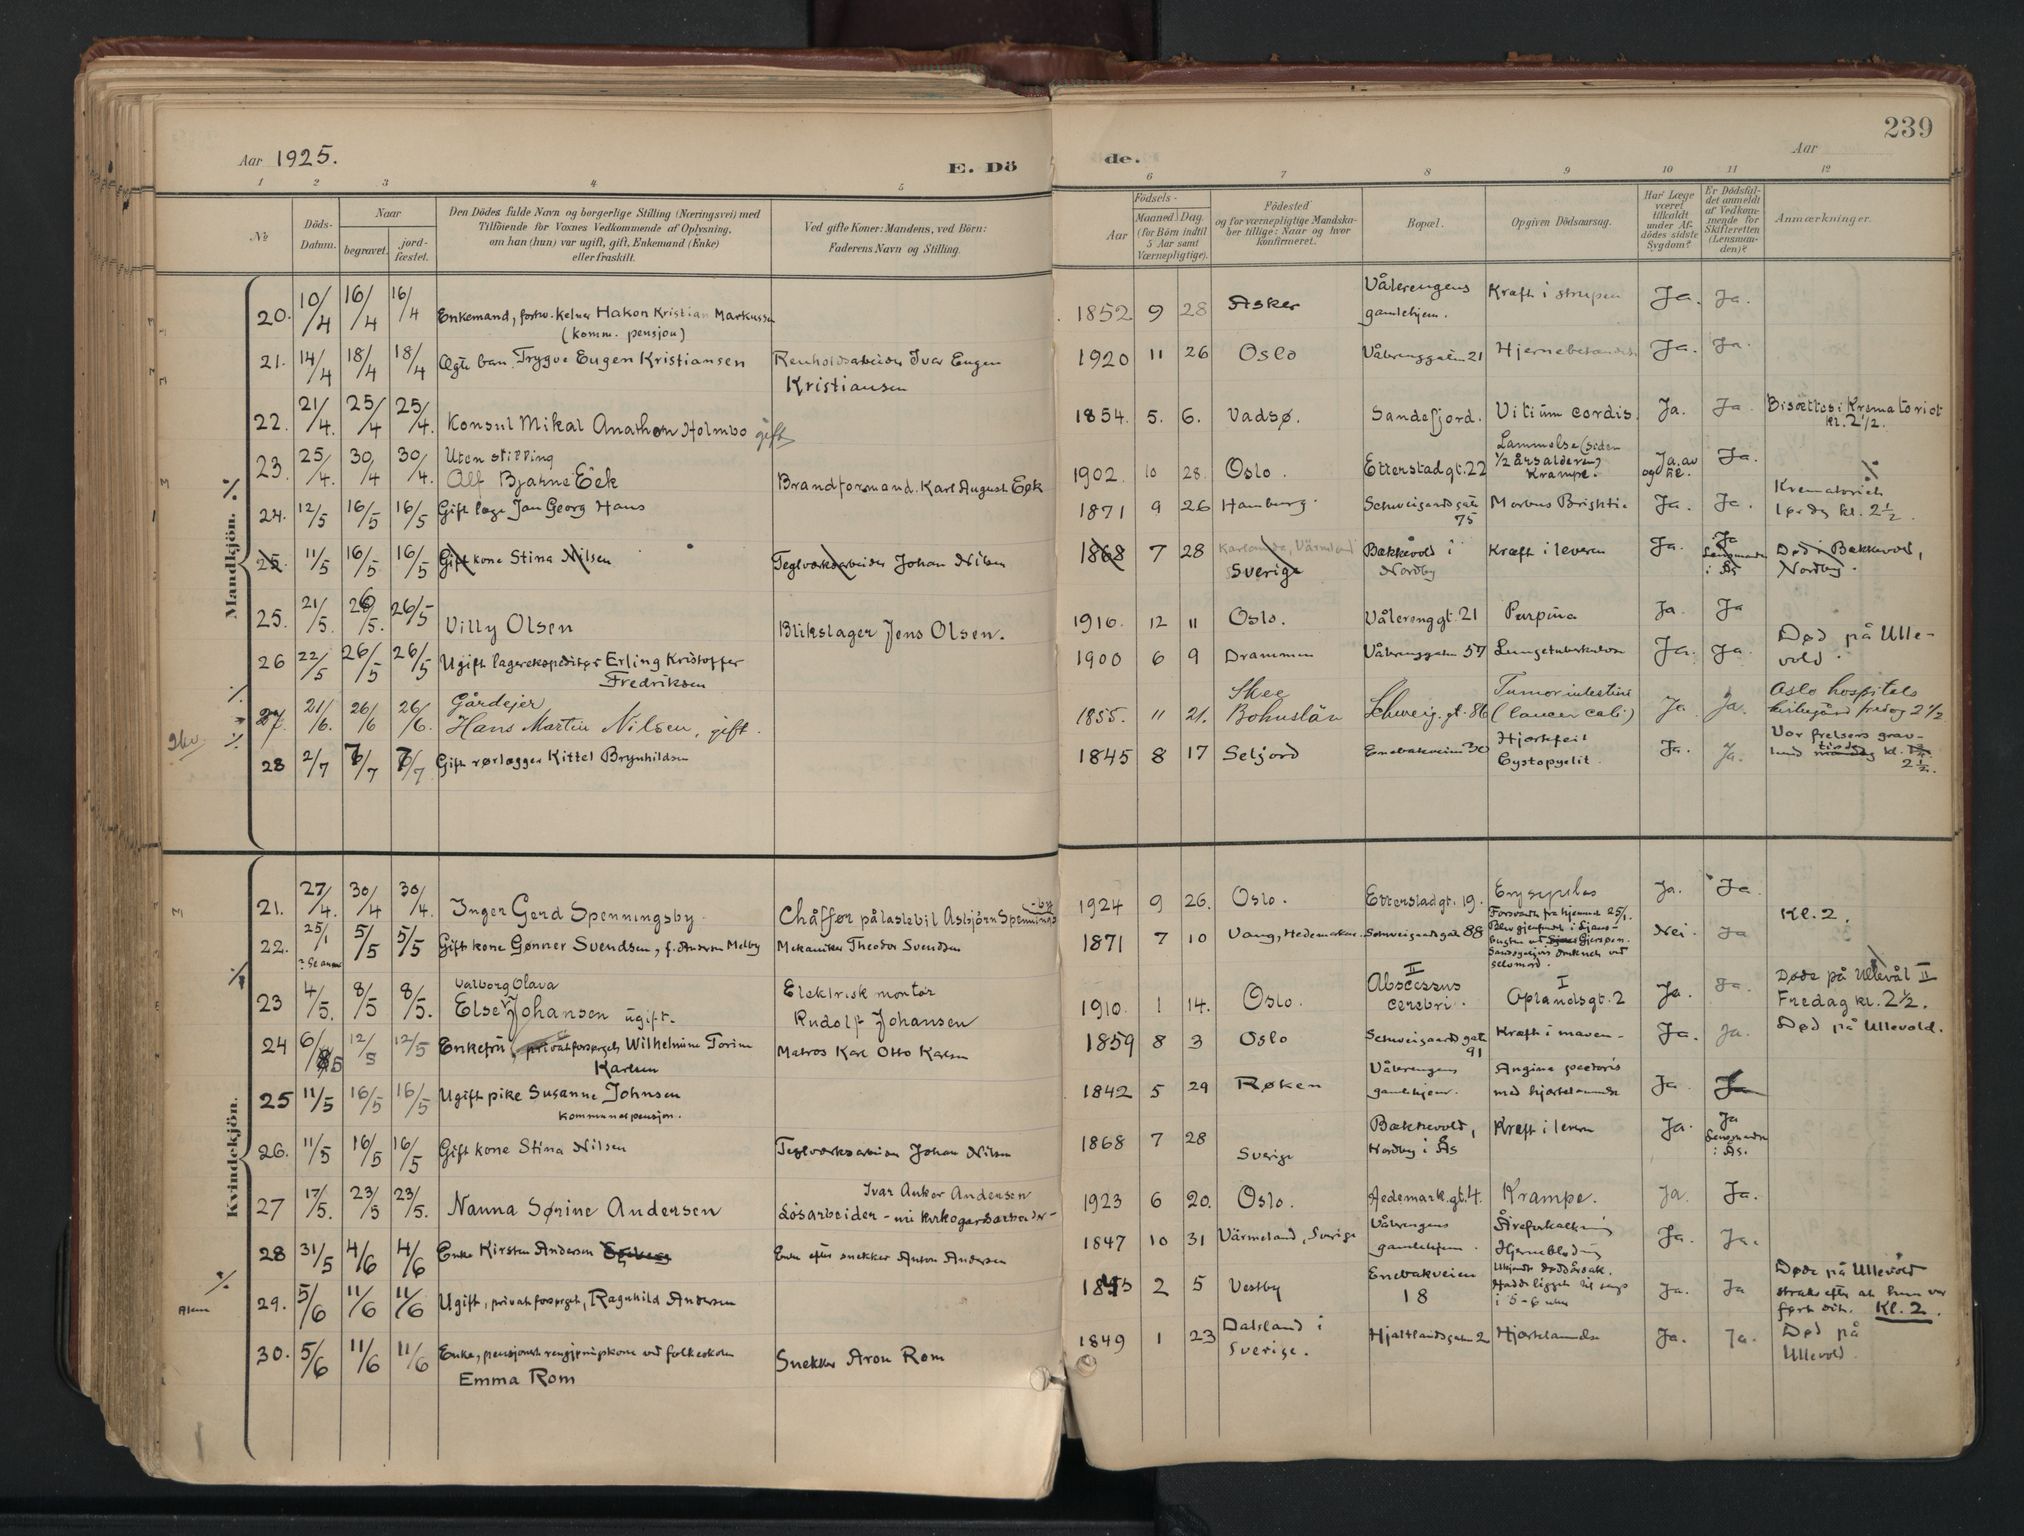 Aar 1925.
E. Dö
de.
239
Aar
1 2 3 4 5 6 7 8 9 10 11 12
No
Döds-Datum.
Naar
begravet.
jord-fæstet.
Den Dödes fulde Navn og borgerlige Stilling (Næringsvei) med
Tilföiende for Voxnes Vedkommende af Oplysning,
om han (hun) var ugift, gift, Enkemand (Enke)
eller fraskilt.
Ved gifte Koner: Mandens, ved Börn:
Faderens Navn og Stilling.
Födsels-
Aar
Maaned Dag
(for Börn indtil
5 Aar samt
Værnepligtige).
Födested
og for værnepligtige Mandska-
ber tillige: Naar og hvor
konfirmeret.
Bopæl.
Opgiven Dödsaarsag.
Har Læge
været
tilkaldt
under Af-
dödes sidste
Sygdom?
Er Dödsfal-
det anmeldt
af Vedkom-
mende for
Skifteretten
(Lensman-
den)?
Anmærkninger.
Mandkjön.
20. 10/4 16/4 16/4 Enkemand, forhv. kelner Hakon Kristian Markussen 1852 9 28 Asker Vålerengens Kræft i strupen Ja. Ja.
(komm. pensjon) gamlehjem.
21. 14/4 18/4 18/4 Ægte barn Trygve Eugen Kristiansen Renholdsarbeider Ivar Eugen 1920 11 26 Oslo Vålerenggaten 21 Ja. Ja.
Kristiansen
22. 21/4. 25/4 25/4. Konsul Mikal Anathon Holmbo gift 1854. 5. 6. Vadsø. Sandefjord. Vitium cordis. Ja. Ja. Bisættes i Krematoriet
Kl. 2 1/2.
23. 25/4. 30/4 30/4. Uten stilling Lammelse (siden
Alf Bjarne Eek Brandformand. Karl August Eek 1902. 10 28. Oslo. Etterstadgt. 22 1/2 årsalderen) Ja. av Ja.
Krampe. og til.
24. 12/5 16/5 16/5 Gift læge Jan Georg Hans 1871 9 26 Hamburg. Schweigaardsgate Morbus Brightii Ja. Ja. Krematoriet
75 lørdag kl. 2 1/2.
25. 11/5 16/5 16/5 Gift kone Stina Nilsen Teglverksarbeider Johan Nilsen 1868 7 28 Karlanda, Värmland Bækkevold i Kræft i leveren Ja. Ja Død i Bækkevold,
Sverige Nordby Lensmanden i Ås Nordby.
25. 21/5. 26/5. 26/5 Villy Olsen Blikslager Jens Olsen. 1916. 12 11 Oslo. Vålerenggt. 21 Purpura Ja. Ja
26 22/5 26/5 26/5 Ugift lagerekspeditør Erling Kristoffer 1900 6 9 Drammen Vålerenggaten 57 Lungetuberkulose Ja. Ja. Død på Ulle-
Fredriksen vold.
27. 21/6. 26/6 26/6. Gårdejer Skee Tumor intestini Oslo hospitals
Hans Martin Nilsen, gift. 1855. 11 21. Bohuslän Schweig. gt. 86 (cancer coli) Ja Ja. kirkegård fredag 2 1/2
28 2/7 7/7 7/7 Gift rørlægger Kittel Brynhildsen 1845 8 17 Seljord Enebakveien 30 Hjertefeil Ja. Ja. Vor frelsers grav-
Cystopyelit. lund mandag tirsdag kl. 2 1/2.
Kvindekjön.
21. 27/4. 30/4 30/4. Inger Gerd Spenningsby. Chåffør på lastebil Asbjörn Spennings-by 1924 9 26. Oslo. Etterstadgt. 19. Erysipelas Ja. Ja.
22. 25/1 5/5 5/5 Gift kone Gønner Svendsen, f. Andersen Melby Mekaniker Theodor Svendsen 1871 7 10 Vang, Hedemarken. Schweigaardsgate 88 Forsvandt fra hjemmet 25/1. Nei. Ja Kl. 2.
23 4/5. 8/5 8/5. Valborg Olava
Else Johansen ugift. Elektrisk montør
Rudolf Johansen 1910. 1 14. Oslo. II Abscessus cerebri. I Oplandsgt. 2 Ja. Ja Døde på Ullevål II
Fredag kl. 2 1/2.
24 6/5 12/5 12/5 Enkefru, privat forsørget, Wilhelmine Torine Matros Karl Otto Karlsen 1859 8 3 Oslo Schweigaardsgate Kræft i maven Ja. Ja. Død på Ullevold.
Karlsen 91
25 11/5 16/5 16/5 Ugift pike Susanne Johnsen 1842 5 29 Røken Vålerengens Angina pectoris Ja. Ja
Kommunepensjon. gamlehjem. med hjertelammelse
26. 11/5 16/5 16/5 Gift kone Stina Nilsen Teglverksarbeider Johan Nilsen 1868 7 28 Sverige Bækkevold, Kræft i leveren Ja. Ja
Nordby i Ås Lensmanden i Ås.
27 17/5. 23/5 23/5. Nanna Sørine Andersen Ivar Anker Andersen
Løsarbeider - nu kirkegårdsarbeider - 1923 6 20. Oslo. Hedemark.gt. 4. Krampe. Ja. Ja.
28 31/5 4/6 4/6 Enke Kirsten Andersen Enke efter snekker Anton Andersen 1847 10 31 Värmeland, Sverige Vålerengens Åreforkalkning Ja. Ja.
gamlehjem. Hjerneblødning
29. 5/6 11/6 11/6 Ugift, privat forsørget, Ragnhild Andersen 2 5 Vestby Enebakveien Ukjendt dødsårsak. Ja. Ja Døde på Ullevold
18 Hadde ligget til sengs straks efter at hun var
i 5-6 uker ført dit. Kl. 2.
30. 5/6 11/6 11/6 Enke, pensjonert rengjøringskone ved folkeskolen Snekker Aron Rom 1849 1 23 Dalsland i Hjaltlandsgaten 2 Hjertelammelse Ja. Ja. Død på
Emma Rom Sverige. Ullevold.